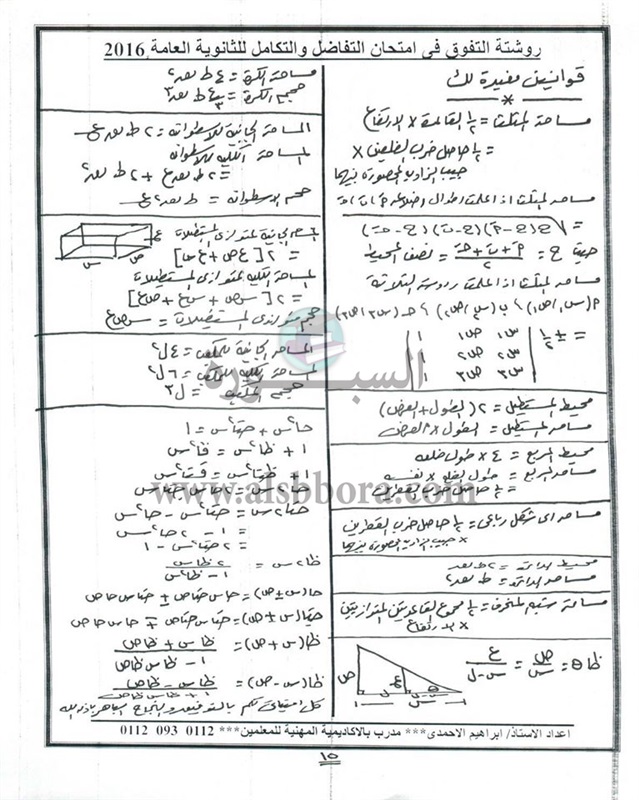 روشتة التفوق فى امتحان التفاضل والتكامل للثانوية العامة 2016
قوانين مفيدة لك
مساحة المثلث = ½ القاعدة × الارتفاع
= ½ حاصل ضرب الضلعين ×
جيب الزاوية المحصورة بينهما
مساحة المثلث اذا علمت اطوال اضلاعه
= √ح(ح-P)(ح-ب)(ح-حـ)
حيث ح = (P+ب+حـ)/٢ = نصف المحيط
مساحة المثلث اذا علمت رءوسه الثلاثة
P(س١،ص١) ، ب(س٢،ص٢) ، حـ(س٣،ص٣)
= ± ½
س١ ص١ ١
س٢ ص٢ ١
س٣ ص٣ ١
محيط المستطيل = ٢(الطول + العرض)
مساحة المستطيل = الطول × العرض
محيط المربع = ٤ × طول ضلعه
مساحة المربع = طول الضلع × نفسه
= ½ حاصل ضرب القطرين
مساحة اى شكل رباعى = ½ حاصل ضرب القطرين
× جيب الزاوية المحصورة بينهما
محيط الدائرة = ٢ ط نق
مساحة الدائرة = ط نق٢
مساحة شبه المنحرف = ½ مجموع القاعدتين المتوازيتين
× الارتفاع
ظاθ = ص/س = ع/(س-ل)
ص
ع
θ
ل
س
مساحة الكرة = ٤ ط نق٢
حجم الكرة = ٤/٣ ط نق٣
المساحة الجانبية للاسطوانه = ٢ ط نق ع
المساحة الكلية للاسطوانه
= ٢ ط نق ع + ٢ ط نق٢
حجم الاسطوانه = ط نق٢ ع
المساحة الجانبية لمتوازى المستطيلات
= ٢[ع ص + ع س]
ع
ص
س
المساحة الكلية لمتوازى المستطيلات
= ٢[س ص + س ع + ص ع]
حجم متوازى المستطيلات = س ص ع
المساحة الجانبية للمكعب = ٤ ل٢
المساحة الكلية للمكعب = ٦ ل٢
حجم المكعب = ل٣
السبورة
حا٢س + حتا٢س = ١
١ + ظا٢س = قا٢س
١ + ظتا٢س = قتا٢س
www.alsbbora.com
حا٢س = ٢ حاس حتاس
حتا٢س = حتا٢س - حا٢س
= ١ - ٢حا٢س
= ٢حتا٢س - ١
ظا٢س = ٢ظاس/(١ - ظا٢س)
حا(س ± ص) = حاس حتاص ± حتاس حاص
حتا(س ± ص) = حتاس حتاص ∓ حاس حاص
ظا(س + ص) = (ظاس + ظاص)/(١ - ظاس ظاص)
ظا(س - ص) = (ظاس - ظاص)/(١ + ظاس ظاص)
كل امنياتى لكم بالتوفيق والنجاح الباهر باذن الله
اعداد الاستاذ/ ابراهيم الاحمدى*** مدرب بالاكاديمية المهنية للمعلمين*** 0112 093 0112
١٥